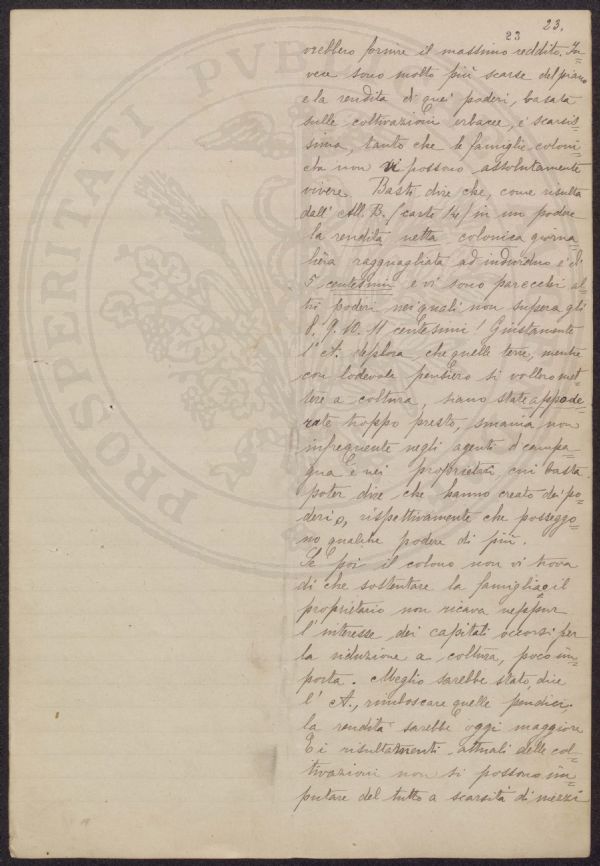 23 23.
vrebbero fornire il massimo reddito. In-
vece sono molto più scarse del piano
e la rendita di quei poderi, basata
sulle coltivazioni erbacee, è scarsis-
sima, tanto che le famiglie coloni-
che non vi possono assolutamente
vivere. Basti dire che, come risulta
dall' All. B. (carte 14) in un podere
la rendita netta colonica giorna-
liera ragguagliata ad individuo è di
5 centesimi e vi sono parecchi al-
tri poderi nei quali non supera gli
8. 9. 10. 11 centesimi! Giustamente
l' A. deplora che quelle terre, mentre
con lodevole pensiero si vollero met-
tere a coltura, siano state appode-
rate troppo presto, smania non
infrequente negli agenti di campa-
gna e nei proprietari cui basta
poter dire che hanno creato dei po-
deri o, rispettivamente che posseggo-
no qualche podere di più.
Se poi il colono non vi trova
di che sostentare la famiglia e il
proprietario non ricava neppur
l' interesse dei capitali occorsi per
la riduzione a coltura, poco im-
porta. Meglio sarebbe stato, dice
l' A., rimboscare quelle pendici;
la rendita sarebbe oggi maggiore
E i risultamenti attuali delle col-
tivazioni non si possono im-
putare del tutto a scarsità di mezzi
PROSPERITATI PVB